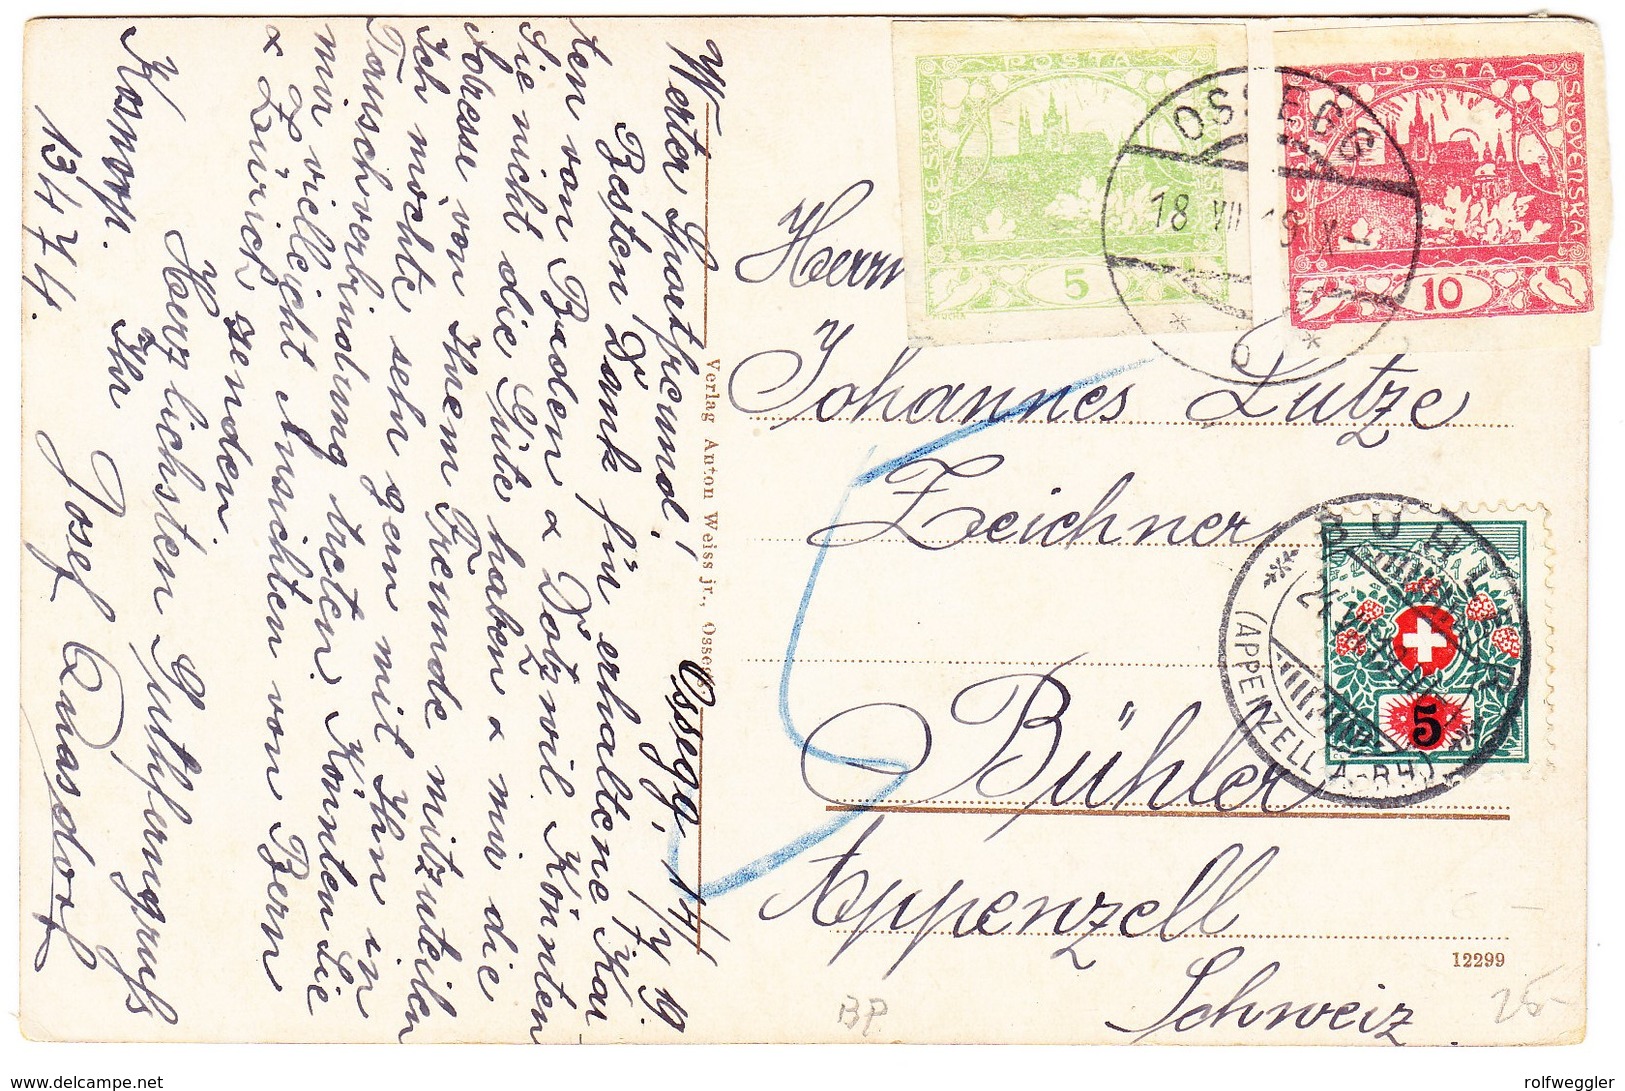 Ossegg, 14/7. 19.
Werter Sportfreund!
Besten Dank für erhaltene Kar-
ten von Baden & Dotzwil. Könnten
Sie nicht die Güte haben & mir die
Adresse von Ihrem Freunde mitzuteilen
Ich möchte sehr gern mit Ihm in
Tauschverbindung treten. Könnten Sie
mir vielleicht Ansichten von Bern
& Zürich senden.
Herzlichsten Gutferngruß
Ihr Josef Quasdorf
Kosmop.
13474.
Verlag Anton Weiss jr., Ossegg
Herrn
Johannes Lutze
Zeichner
Bühler
Appenzell
Schweiz.
POSTA
ČESKO
5
MUCHA
POSTA
SLOVENSKÁ
10
OSSEGG
18 VII 19 X-
* b *
BÜHLER
(APPENZELL A-RH.)
5
12299
BP.
25-
www.delcampe.net
rolfweggler